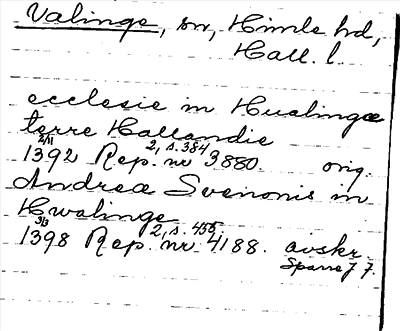 Valinge, sn, Himle hd,
Hall. l
ecclesie in Hualingæ
terre Hallandie
2/11 2, s. 384
1392 Rep. nr 3880. orig.
Andrea Svenonis in
Hwalinge
3/3 2, s. 455
1398 Rep. nr. 4188. avskr.
Sparre 7 7.